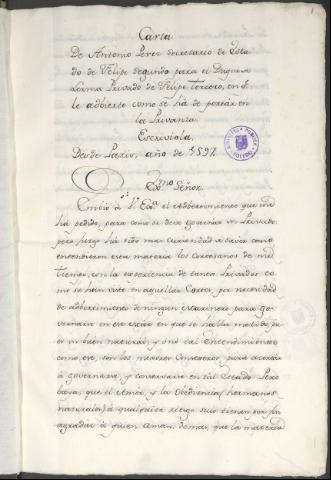 Carta
De Antonio Perez secretario de Esta
do de Felipe segundo para el Duque de
Lerma Privado de Felipe Tercero, en q.e
le advierte como se ha de portar en
la Privanza.
Escriviola,
Desde Paris, año de 1597.
Ex.mo Señor.
Embio á V. Ex.a el advertimiento que me
ha pedido, para como se deve governar un Privado
pero juzgo ha sido mas curiosidad de saver como
entendieron esta materia los cortesanos de mi
Tiempo, con la experiencia de tantos Privados co
mo se han visto en aquellas Cortes, por necesidad
de advertimiento de ningun estrangero para go-
vernarse en ese estado en que se halla metido, pu
es un buen natural, y un tal entendimiento
como ese son los mejores Consejeros, para acertar
á governarse, y conservarse en tal Estado. Pero
basta, que el amor, y la obediencia (hermanos
naturales) á qualquier riesgo suio tienen por fin
agradar á quien aman, demas, que la materia
BIBLIOTECA PUBLICA
TOLEDO